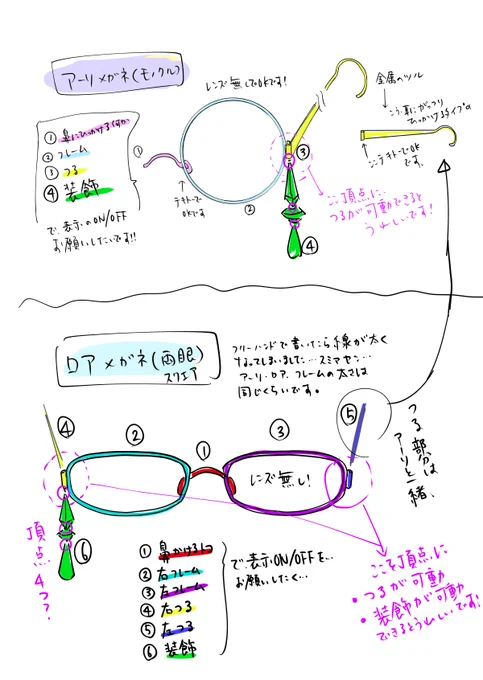 アーリメガネ(モノクル)
レンズ無しでOKです!
金属のツル
こう耳にがっつり
ひっかけるタイプの
シンテキトーでOK
です。
① 鼻にひっかける何か
② フレーム
③ つる
④ 装飾
で、表示のON/OFF
お願いしたいです!!
①
テキトーで
OKです。
②
③
④
ここ頂点に
つるが可動できると
うれしいです!
ロアメガネ(両眼)
スクエア
フリーハンドで書いたら線が太く
なってしまいました…スミマセン…
アーリ・ロア、フレームの太さは
同じくらいです。
④
②
①
③
⑤
レンズ無し!
つる部分は
アーリと一緒、
頂点4つ??
⑥
① 鼻かけるトコ
② 右フレーム
③ 左フレーム
④ 右つる
⑤ 左つる
⑥ 装飾
で、表示ON/OFFを…
お願いしたく…
ここを頂点に
・つるが可動
・装飾が可動
できるとうれしいです!